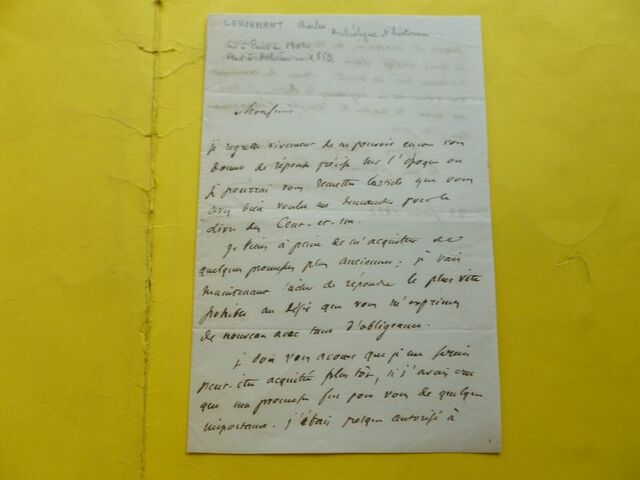 LENORMANT Charles Archéologue et historien
Né à Paris en 1802
Mort à Athènes en 1859
Monsieur
je regrette vivement de ne pouvoir encore vous
donner de réponse précise sur l'époque où
je pourrai vous remettre l'article que vous
avez bien voulu me demander pour le
Livre des Cent-et-un.
Je viens à peine de m'acquitter de
quelques promesses plus anciennes : je vais
maintenant tâcher de répondre le plus vite
possible au désir que vous m'exprimez
de nouveau avec tant d'obligeance.
je dois vous avouer que je me serais
peut-être acquitté plus tôt, si j'avais cru
que ma promesse fut pour vous de quelque
importance. j'étais presque autorisé à